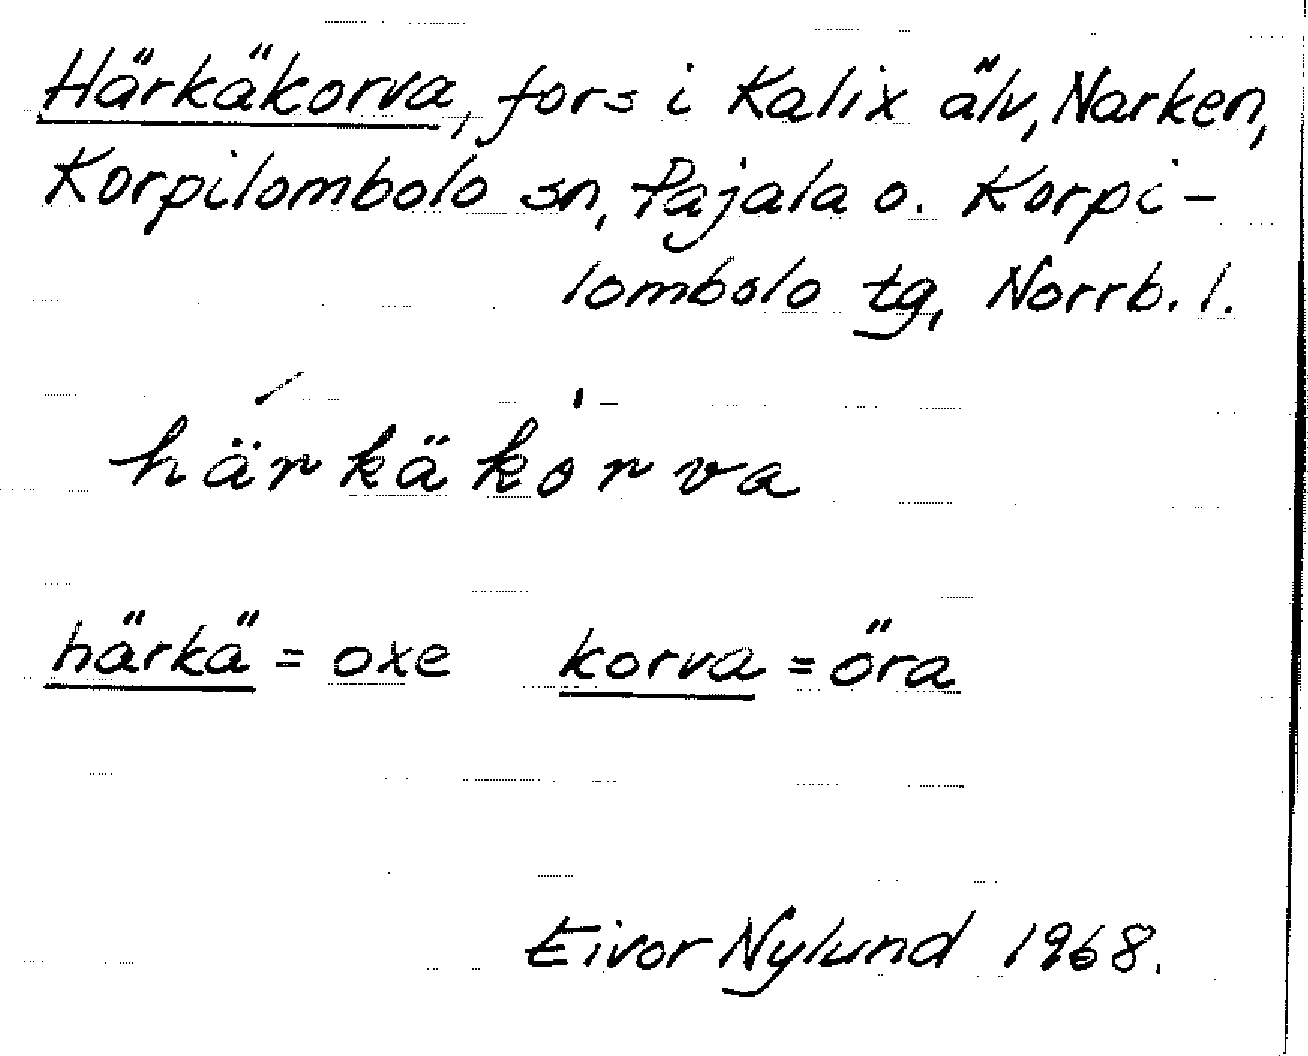 Härkäkorva, fors i Kalix älv, Narken,
Korpilombolo sn, Pajala o. Korpi-
lombolo tg, Norrb. l.
härkäkorva
härkä = oxe korva = öra
Eivor Nylund 1968.